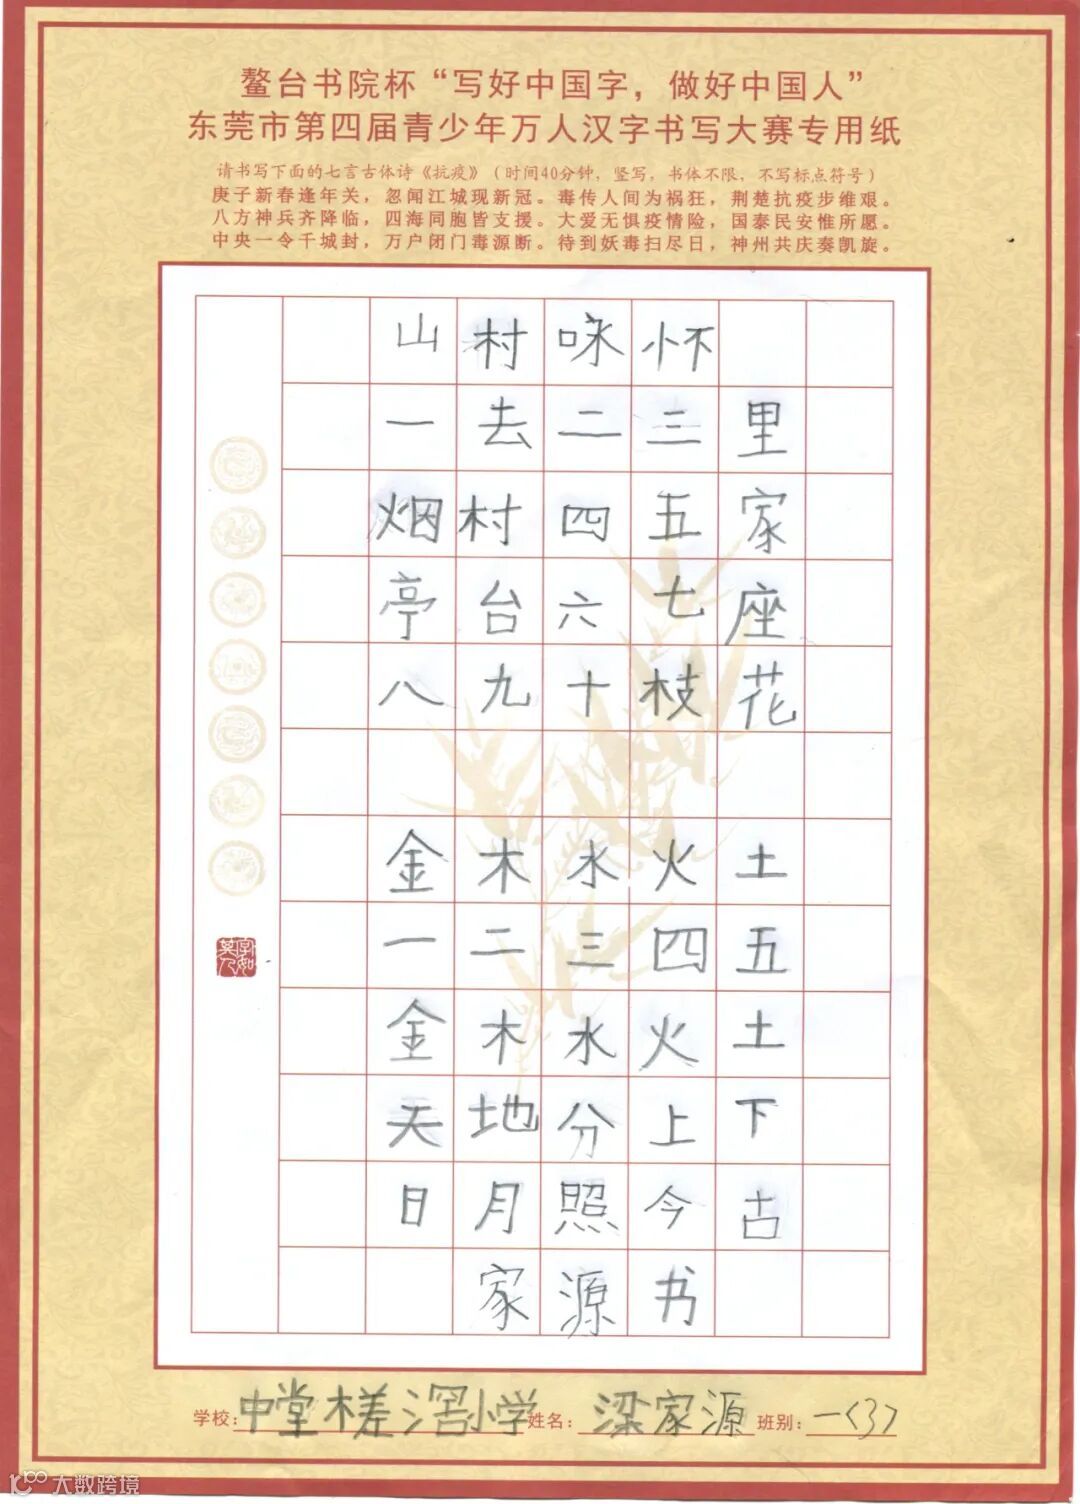 鳌台书院杯“写好中国字，做好中国人”
东莞市第四届青少年万人汉字书写大赛专用纸
请书写下面的七言古体诗《抗疫》（时间40分钟，竖写，书体不限，不写标点符号）
庚子新春逢年关，忽闻江城现新冠。毒传人间为祸狂，荆楚抗疫步维艰。
八方神兵齐降临，四海同胞皆支援。大爱无惧疫情险，国泰民安惟所愿。
中央一令千城封，万户闭门毒源断。待到妖毒扫尽日，神州共庆奏凯旋。
山村咏怀
一去二三里
烟村四五家
亭台六七座
八九十枝花
金木水火土
一二三四五
金木水火土
天地分上下
日月照今古
家源书
学校：中堂槎滘小学 姓名：梁家源 班别：一〈3〉
大数跨境